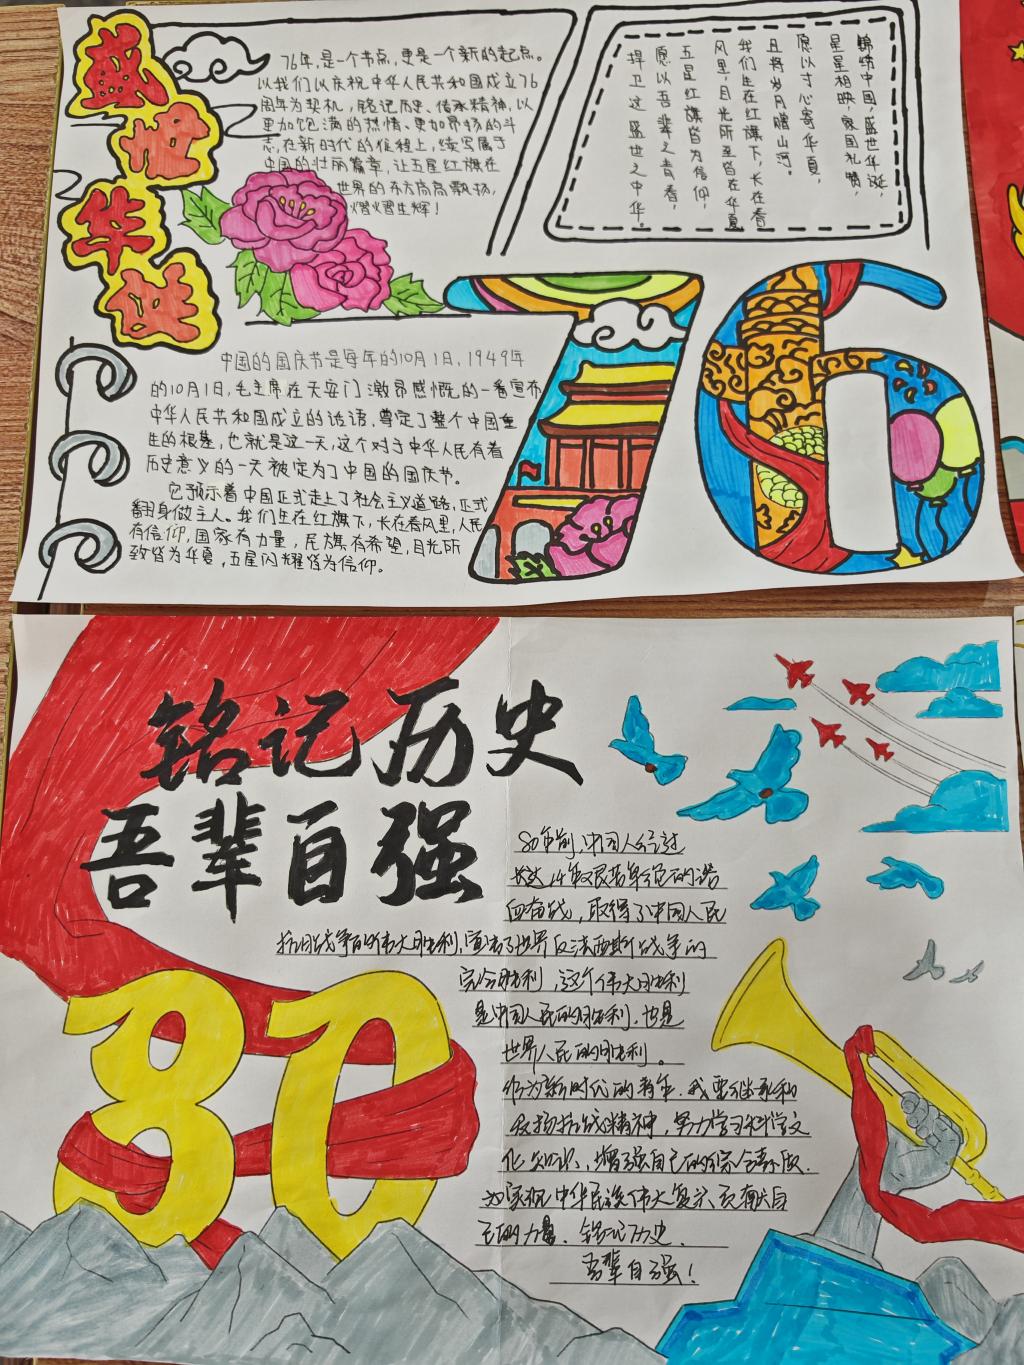 盛世华诞
76年,是一个节点,更是一个新的起点。
以我们以庆祝中华人民共和国成立76
周年为契机,铭记历史、传承精神,以
更加饱满的热情、更加昂扬的斗
志,在新时代的征程上,续写属于
中国的壮丽篇章,让五星红旗在
世界的东方高高飘扬,
熠熠生辉!
锦绣中国,盛世华诞,
星星相映,家国礼赞,
愿以寸心寄华夏,
且将岁月赠山河。
我们生在红旗下,长在春
风里,目光所至皆在华夏
五星红旗皆为信仰,
愿以吾辈之青春,
捍卫这盛世之中华。
76
中国的国庆节是每年的10月1日,1949年
的10月1日,毛主席在天安门激昂感慨的一番宣布
中华人民共和国成立的话语,尊定了整个中国重
生的根基,也就是这一天,这个对于中华人民有着
历史意义的一天被定为了中国的国庆节。
它预示着中国正式走上了社会主义道路,正式
翻身做主人。我们生在红旗下,长在春风里,人民
有信仰,国家有力量,民族有希望,目光所
致皆为华夏,五星闪耀皆为信仰。
铭记历史
吾辈自强
80年前,中国人经过
长达14年艰苦卓绝的浴
血奋战,取得了中国人民
抗日战争的伟大胜利,宣告了世界反法西斯战争的
完全胜利,这个伟大胜利
是中国人民的胜利,也是
世界人民的胜利。
作为新时代的青年,我要继承和
发扬抗战精神,努力学习科学文
化知识,增强自己的综合素质,
为实现中华民族伟大复兴贡献自
己的力量。铭记历史,
吾辈自强!
80